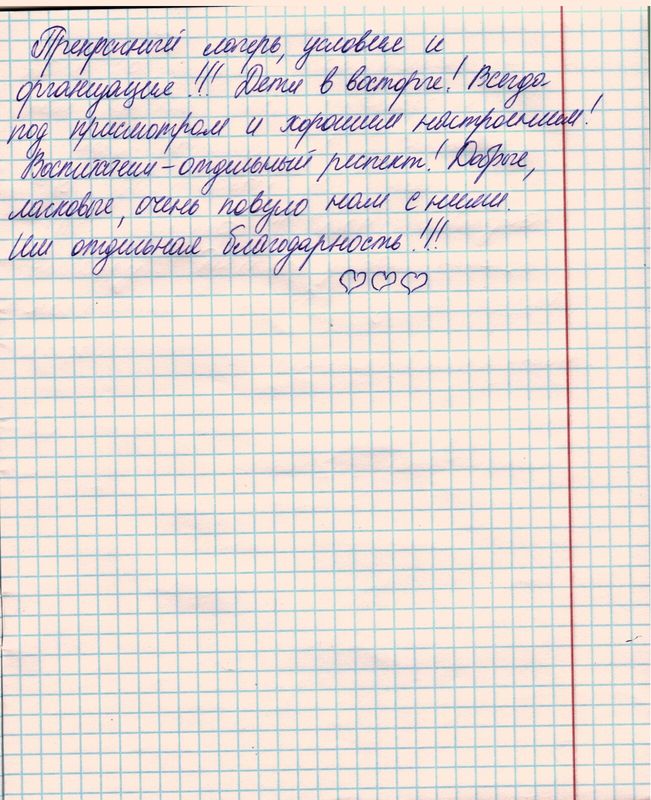 Прекрасный лагерь, условие и
организация!!! Дети в восторге! Всегда
под присмотром и хорошим настроением!
Воспитатели - отдельный респект! Добрые,
ласковые, очень повузло нам с ними.
Им отдельная благодарность!!!